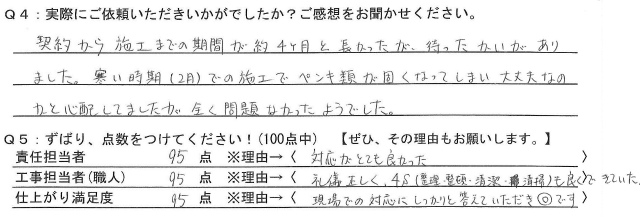 Q4：実際にご依頼いただきいかがでしたか？ご感想をお聞かせください。
契約から施工までの期間が約4ヶ月と長かったが、待ったかいがあり
ました。寒い時期（2月）での施工でペンキ類が固くなってしまい大丈夫なの
かと心配してましたが全く問題なかったようでした。
Q5：ずばり、点数をつけてください！（100点中）　【ぜひ、その理由もお願いします。】
責任担当者　95　点　※理由→〈　対応がとても良かった　〉
工事担当者（職人）　95　点　※理由→〈　礼儀正しく、4S（整理・整頓・清潔・清掃）も良くできていた。〉
仕上がり満足度　95　点　※理由→〈　現場での対応にしっかりと答えていただき◎です　〉